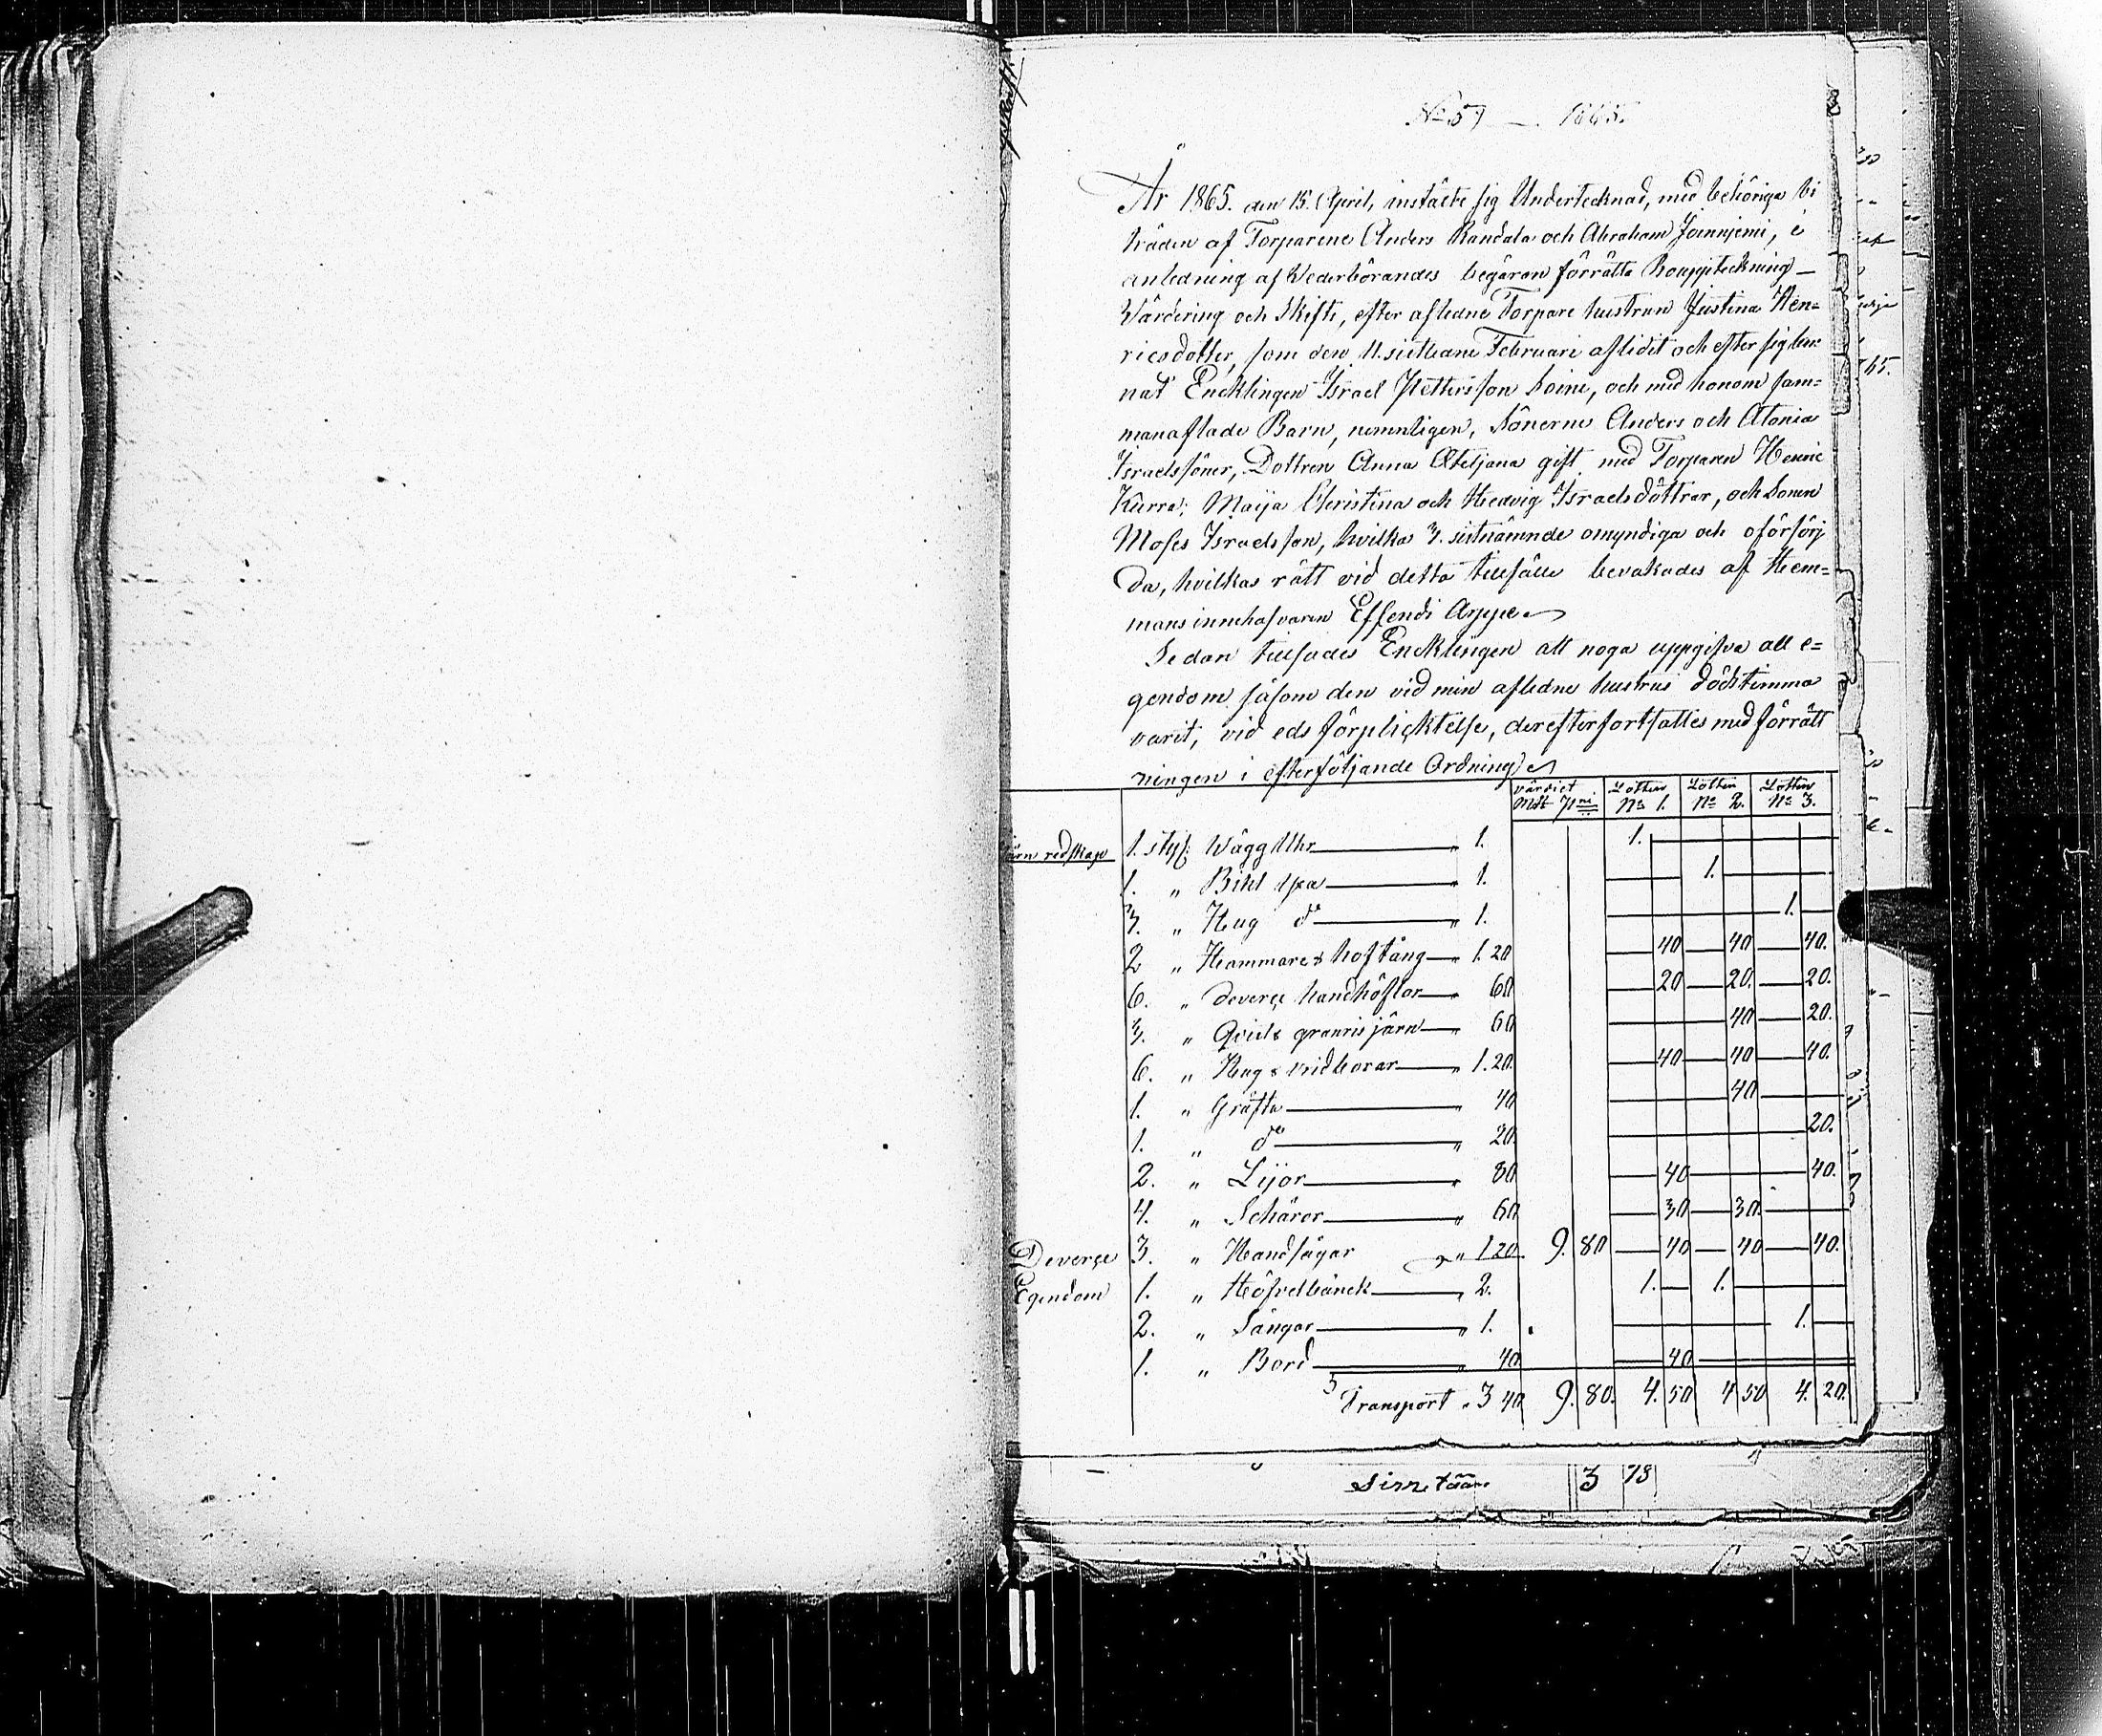 No 57 — 1865.
År 1865. den 15. April, instälte sig Undertecknad, med behöriga bi
träden af Torparene Anders Randala och Abraham Joenniemi, i
anledning af Wederbörandes begäran förrätta Bouppteckning—
Wärdering och Skifte, efter afledne Torpare hustrun Justina Hen=
ricsdotter, som den 11. sistledne Februari aflidit och efter sig lem
nat Encklingen Israel Pettersson Soini, och med honom sam=
manaflade Barn, nemnligen, Sönerne Anders och Atonia
Israelssöner, Dottren Anna gift med Torparen Henric
Kurra; Maija Christina och Hedvig Israelsdöttrar, och Sonen
Moses Israelsson, hvilka 3. sistnämnde omyndiga och oförsörj
da, hvilkas rätt vid detta tillfälle bevakades af Hem=
mans innehafvaren Effendi Arppe
Sedan tillsades Encklingen att noga uppgifva all e=
gendom såsom den vid min afledne hustrus dödstimma
varit, vid eds förplicktelse, derefter fortsattes med förrätt
ningen i efterföljande Ordning
värdiet Mdt Pni Lotten No 1. Lotten No 2. Lotten No 3.
Järn redskap 1. styc: Wägg Uhr — " 1. 1.
1. " Bihl yxa — " 1. 1.
3. " Hug do — " 1. 1.
2 " Hammare & hoftång — " 1.20 40 40 40.
6. " deverse handhöflor — " 60 20 20. 20.
3. " Qvist & granris järn — " 60 40 20.
6. " Hug & vridborar — " 1.20. 40 40 40.
1. " Gräfta — " 40 40
1. " do — " 20. 20.
2. " Lijor — " 80 40 40.
4. " Schäror — " 60 30 30.
Deverse 3. " Handsågar " 1 20. 9. 80 40 40 40.
Egendom 1. " Höfvelbänck — " 2. 1. 1.
2. " Sängar — " 1. 1.
1. " Bord — " 40 40
Transport " 3 40 9. 80. 4. 50 4 50 4. 20.
Siirretään 3 78